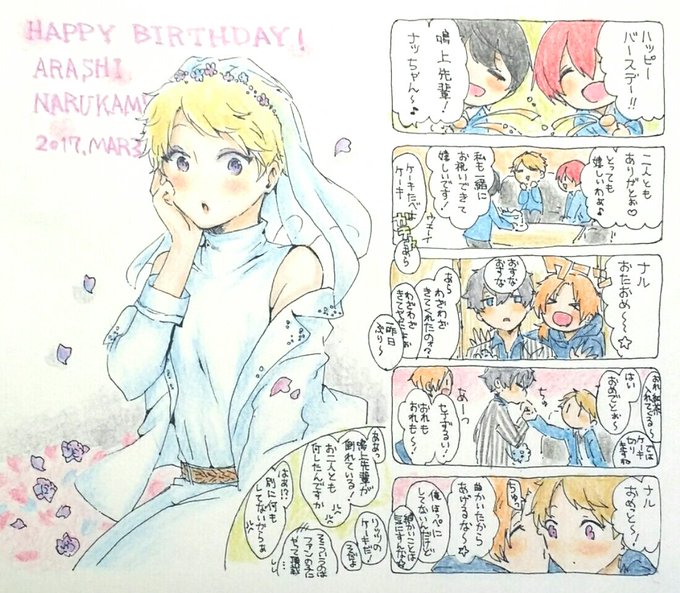 HAPPY BIRTHDAY!
ARASHI
NARUKAM
2017.MAR3
ハッピー
バースデー!!
鳴上先輩!
ナッちゃん〜♪
二人とも
ありがとお♡
とっても
嬉しいわぁ♪
私も一緒に
お祝いできて
嬉しいです!
ケーキたべよ
ケーキ
ウェーイ
ガチャ
あら
ナル
おたおめ〜〜☆
おすな
おすな
あら
わざわざ
きてくれたのォ?
わざわざ
きてやたよぉ
昨日
ぶり〜
おれ紅茶
入れてくる〜
では
ケーキ
切り
ますね
はい
おめでとぉ〜
ちゅ
あーっ
セナずるい!
おれも
おれも〜!
ナル
おめっと〜!
ちゅっ
曲かいたから
あげるな〜☆
俺ほっぺに
してないんだけど
細かいことは
気にすんな☆
ああっ
鳴上先輩が
倒れている!
お二人とも
何したんですか
はあ!?
別に何も
してないからぁ
リッツの
ケーキだ!